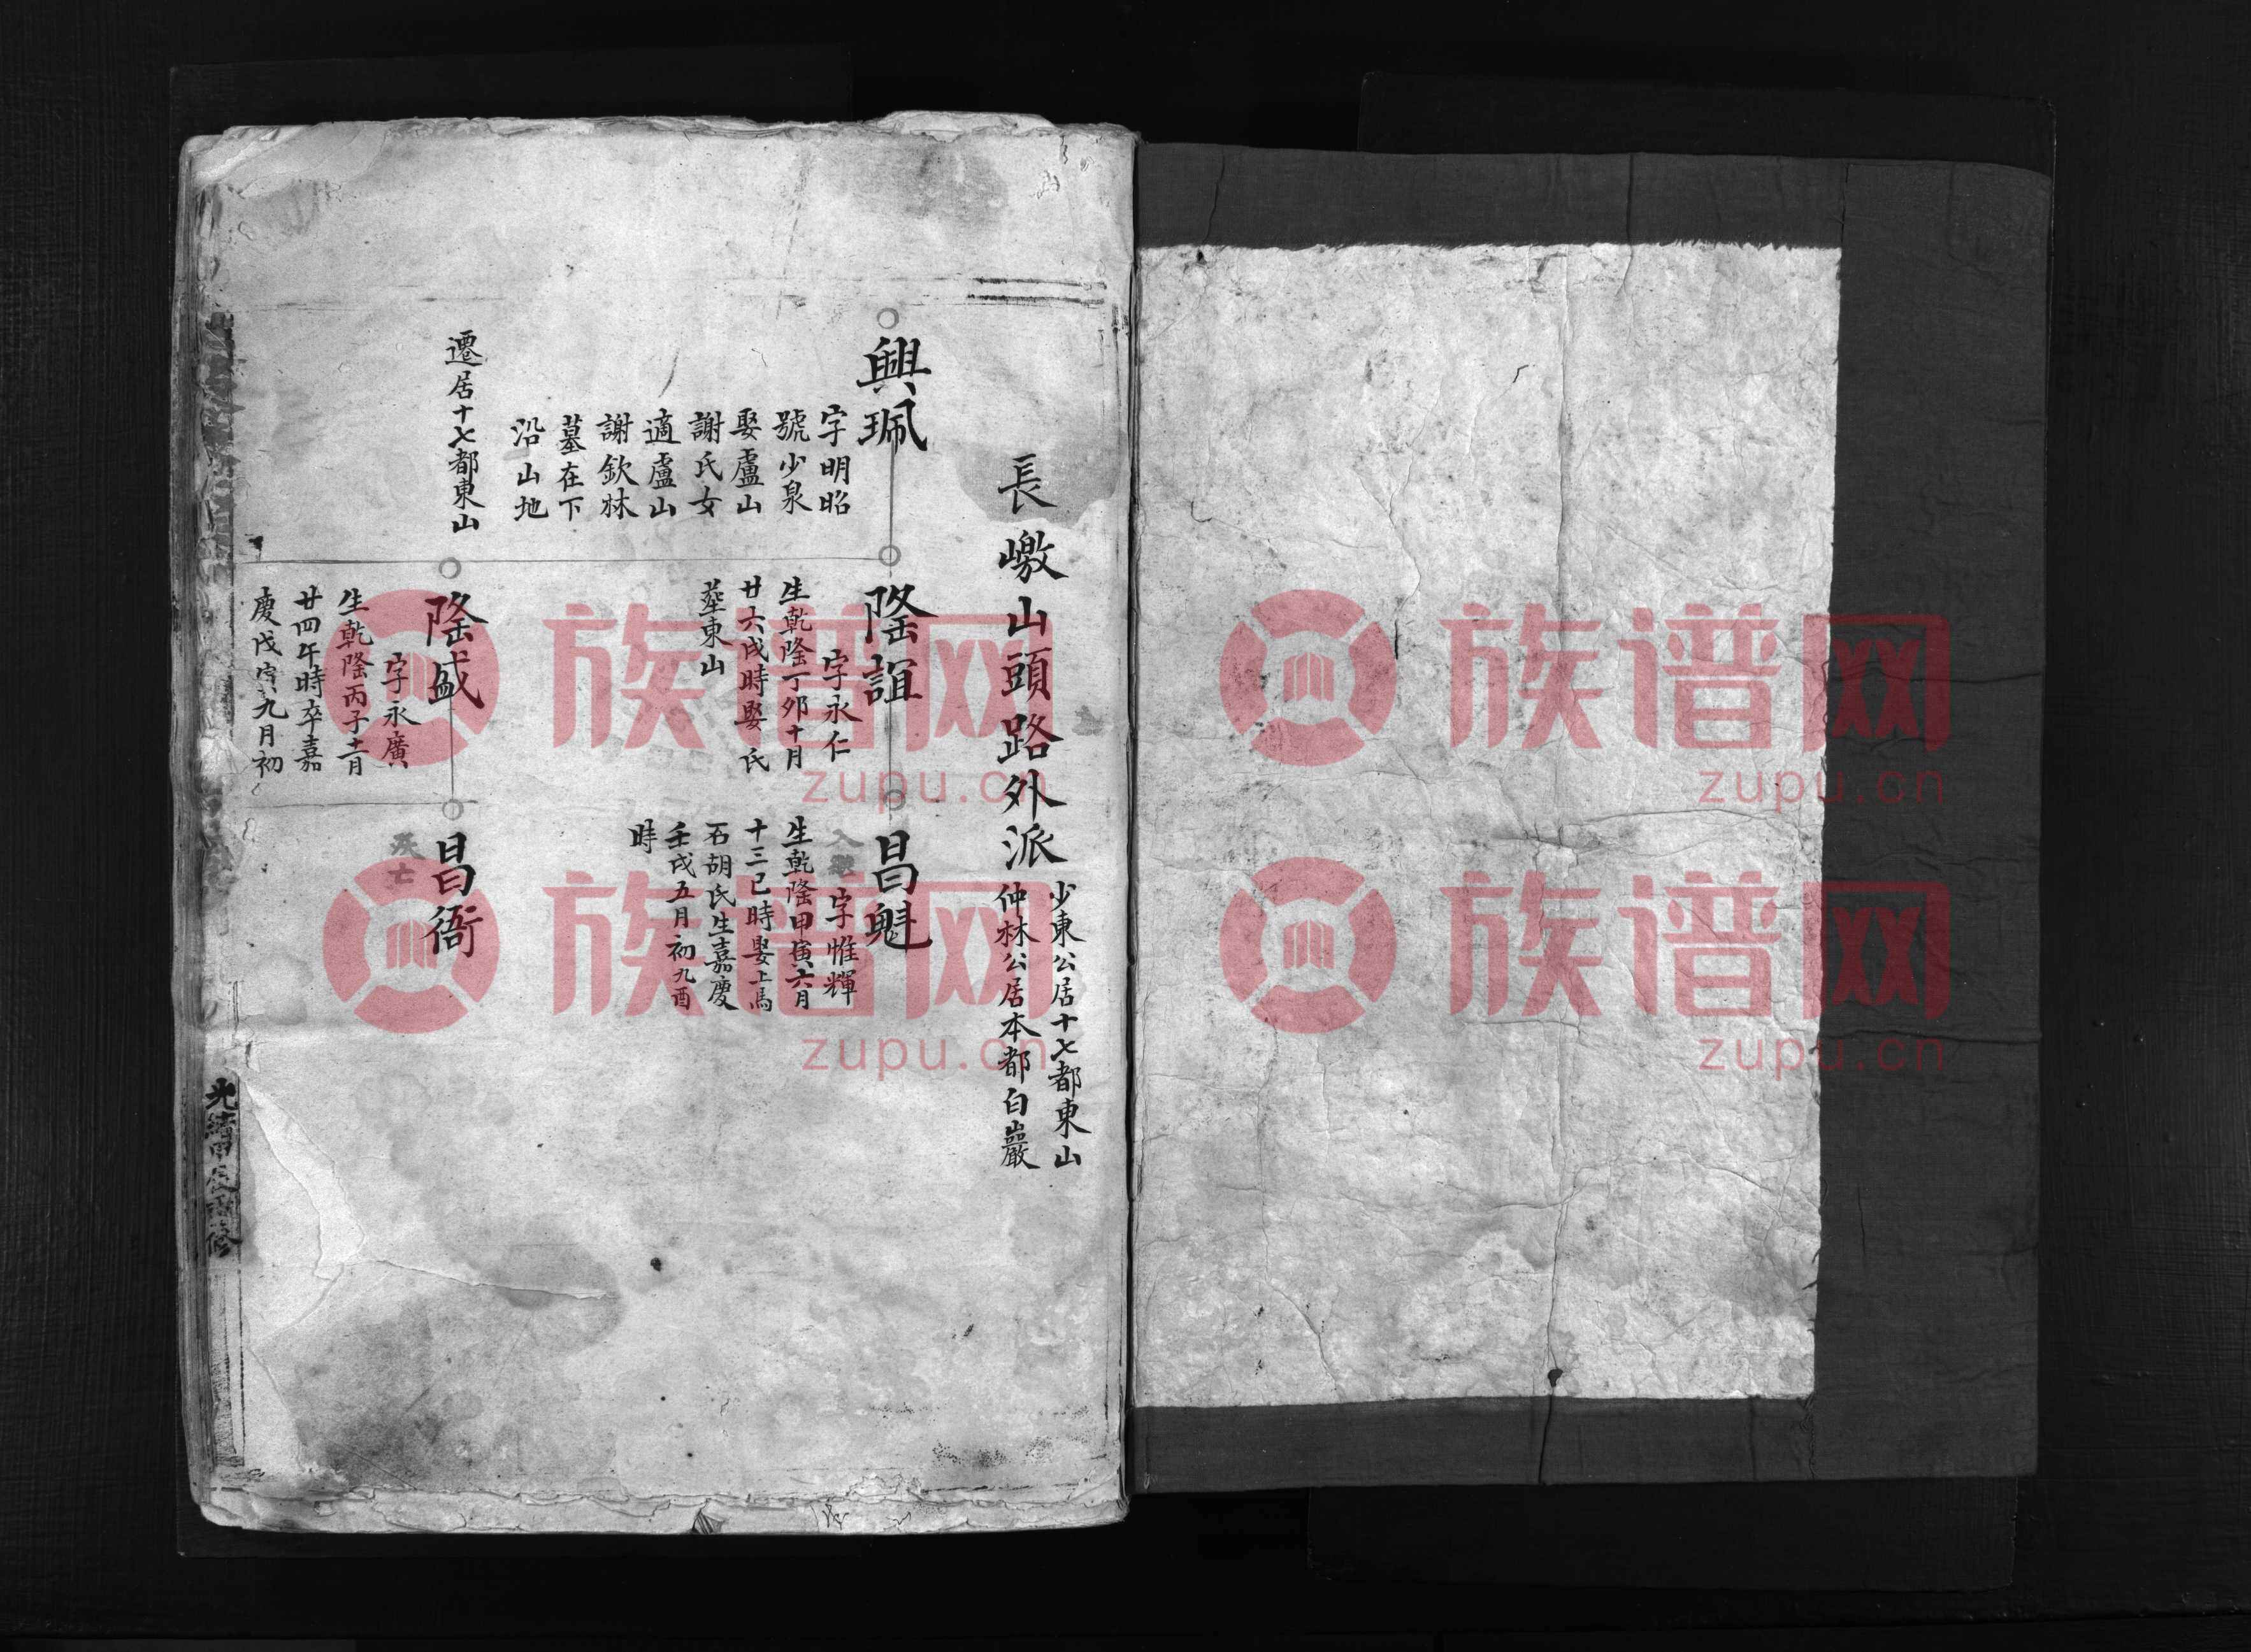 長嶽山頭路外派
少東公居十七都東山
仲林公居本都白巖
興珮
字明昭
號少泉
娶盧山
謝氏女
適盧山
謝欽林
墓在下
沿山地
遷居十七都東山
隆誼
字永仁
生乾隆丁卯十月
廿六戌時娶 氏
葬東山
隆盛
字永廣
生乾隆丙子十二月
廿四午時卒嘉
慶戊寅九月初
昌魁
字惟輝
生乾隆甲寅六月
十三巳時娶上馬
石胡氏生嘉慶
壬戌五月初九酉
時
昌衙
光緒甲辰重修
族谱网
zupu.cn
族谱网
zupu.cn
族谱网
zupu.cn
族谱网
zupu.cn